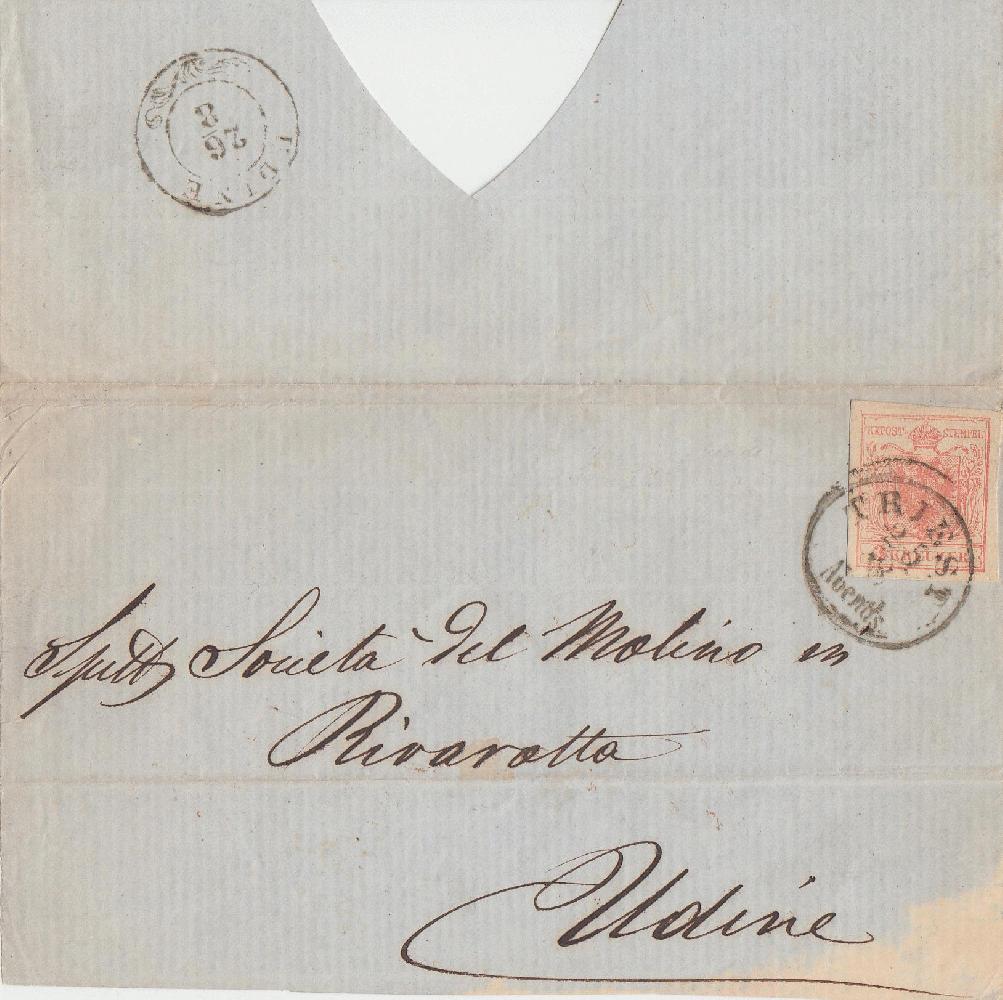 UDINE
26
8
KK POST-STEMPEL
KREUZER
TRIEST
Abends.
Spett Società del Molino in
Rivarotta
Udine